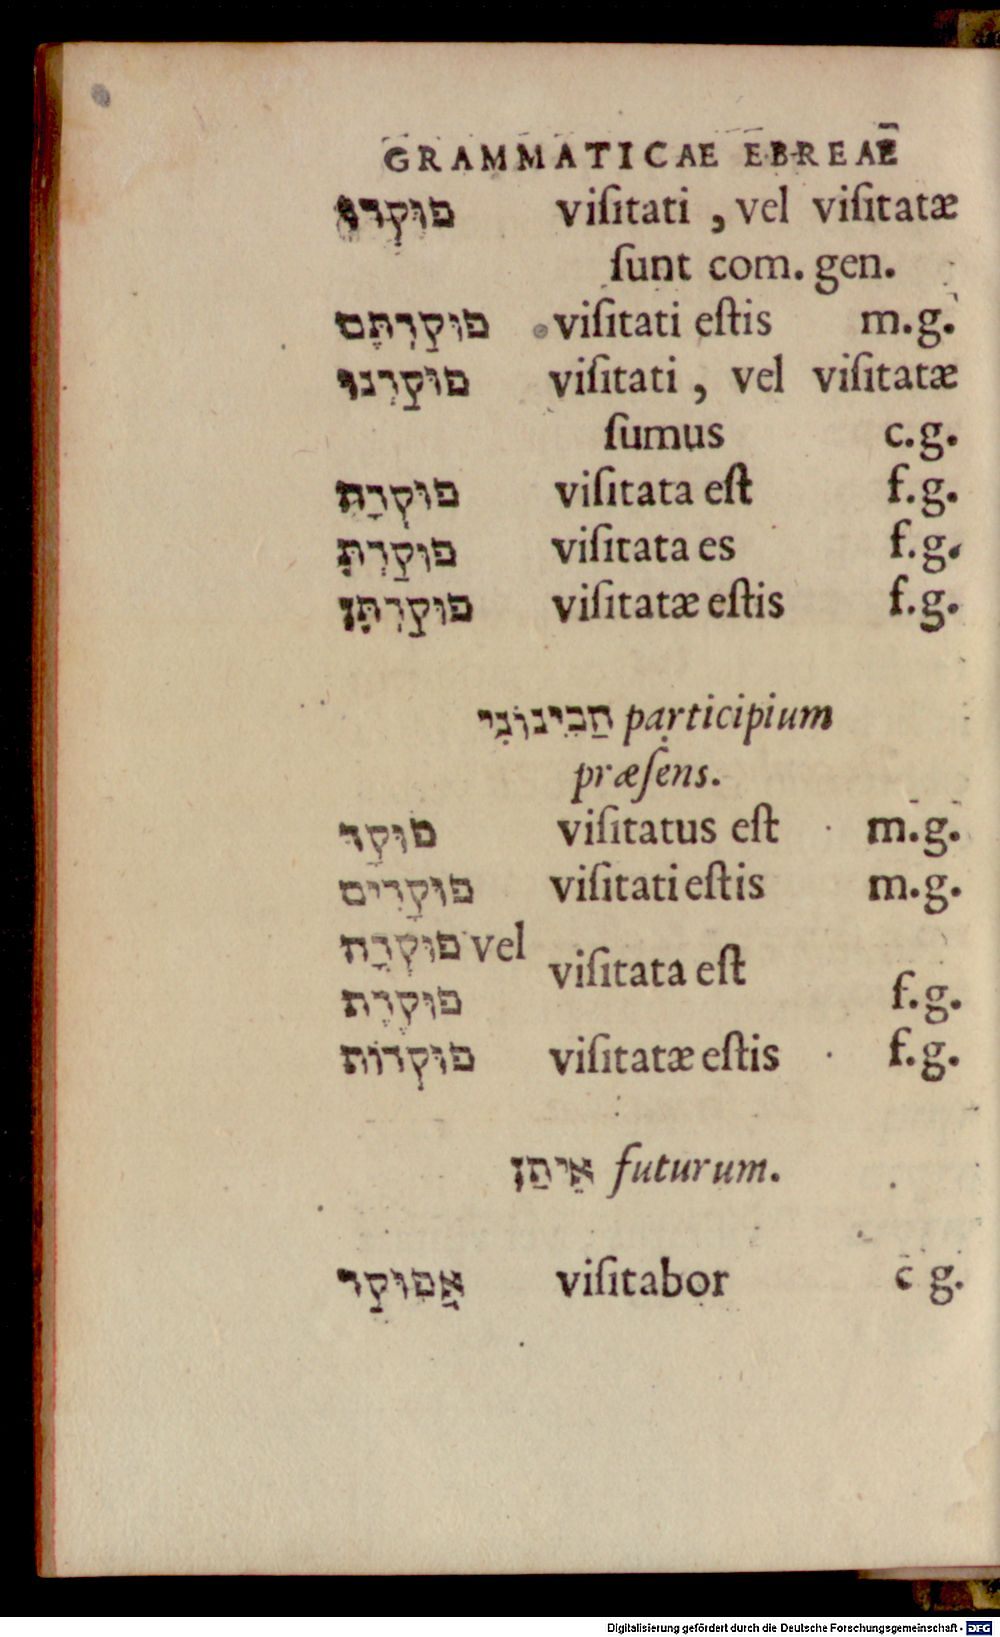 GRAMMATICAE EBREAE
פוּקְדוּ visitati, vel visitatæ
ſunt com. gen.
פוּקַדְתֶּם viſitati eſtis m.g.
פוּקַדְנוּ viſitati, vel viſitatæ
ſumus c.g.
פוּקְדָה viſitata eſt f.g.
פוּקַדְתְּ viſitata es f.g.
פוּקַדְתֶּן viſitatæ eſtis f.g.
הַבִינוֹנִי participium
præſens.
פוּקָד viſitatus eſt m.g.
פוּקָדִים viſitati eſtis m.g.
פוּקְדָה vel
viſitata eſt
פוּקֶדֶת f.g.
פוּקְדוֹת viſitatæ eſtis f.g.
אֵיתַן futurum.
אֲפוּקַד viſitabor c g.
Digitalisierung gefördert durch die Deutsche Forschungsgemeinschaft - DFG